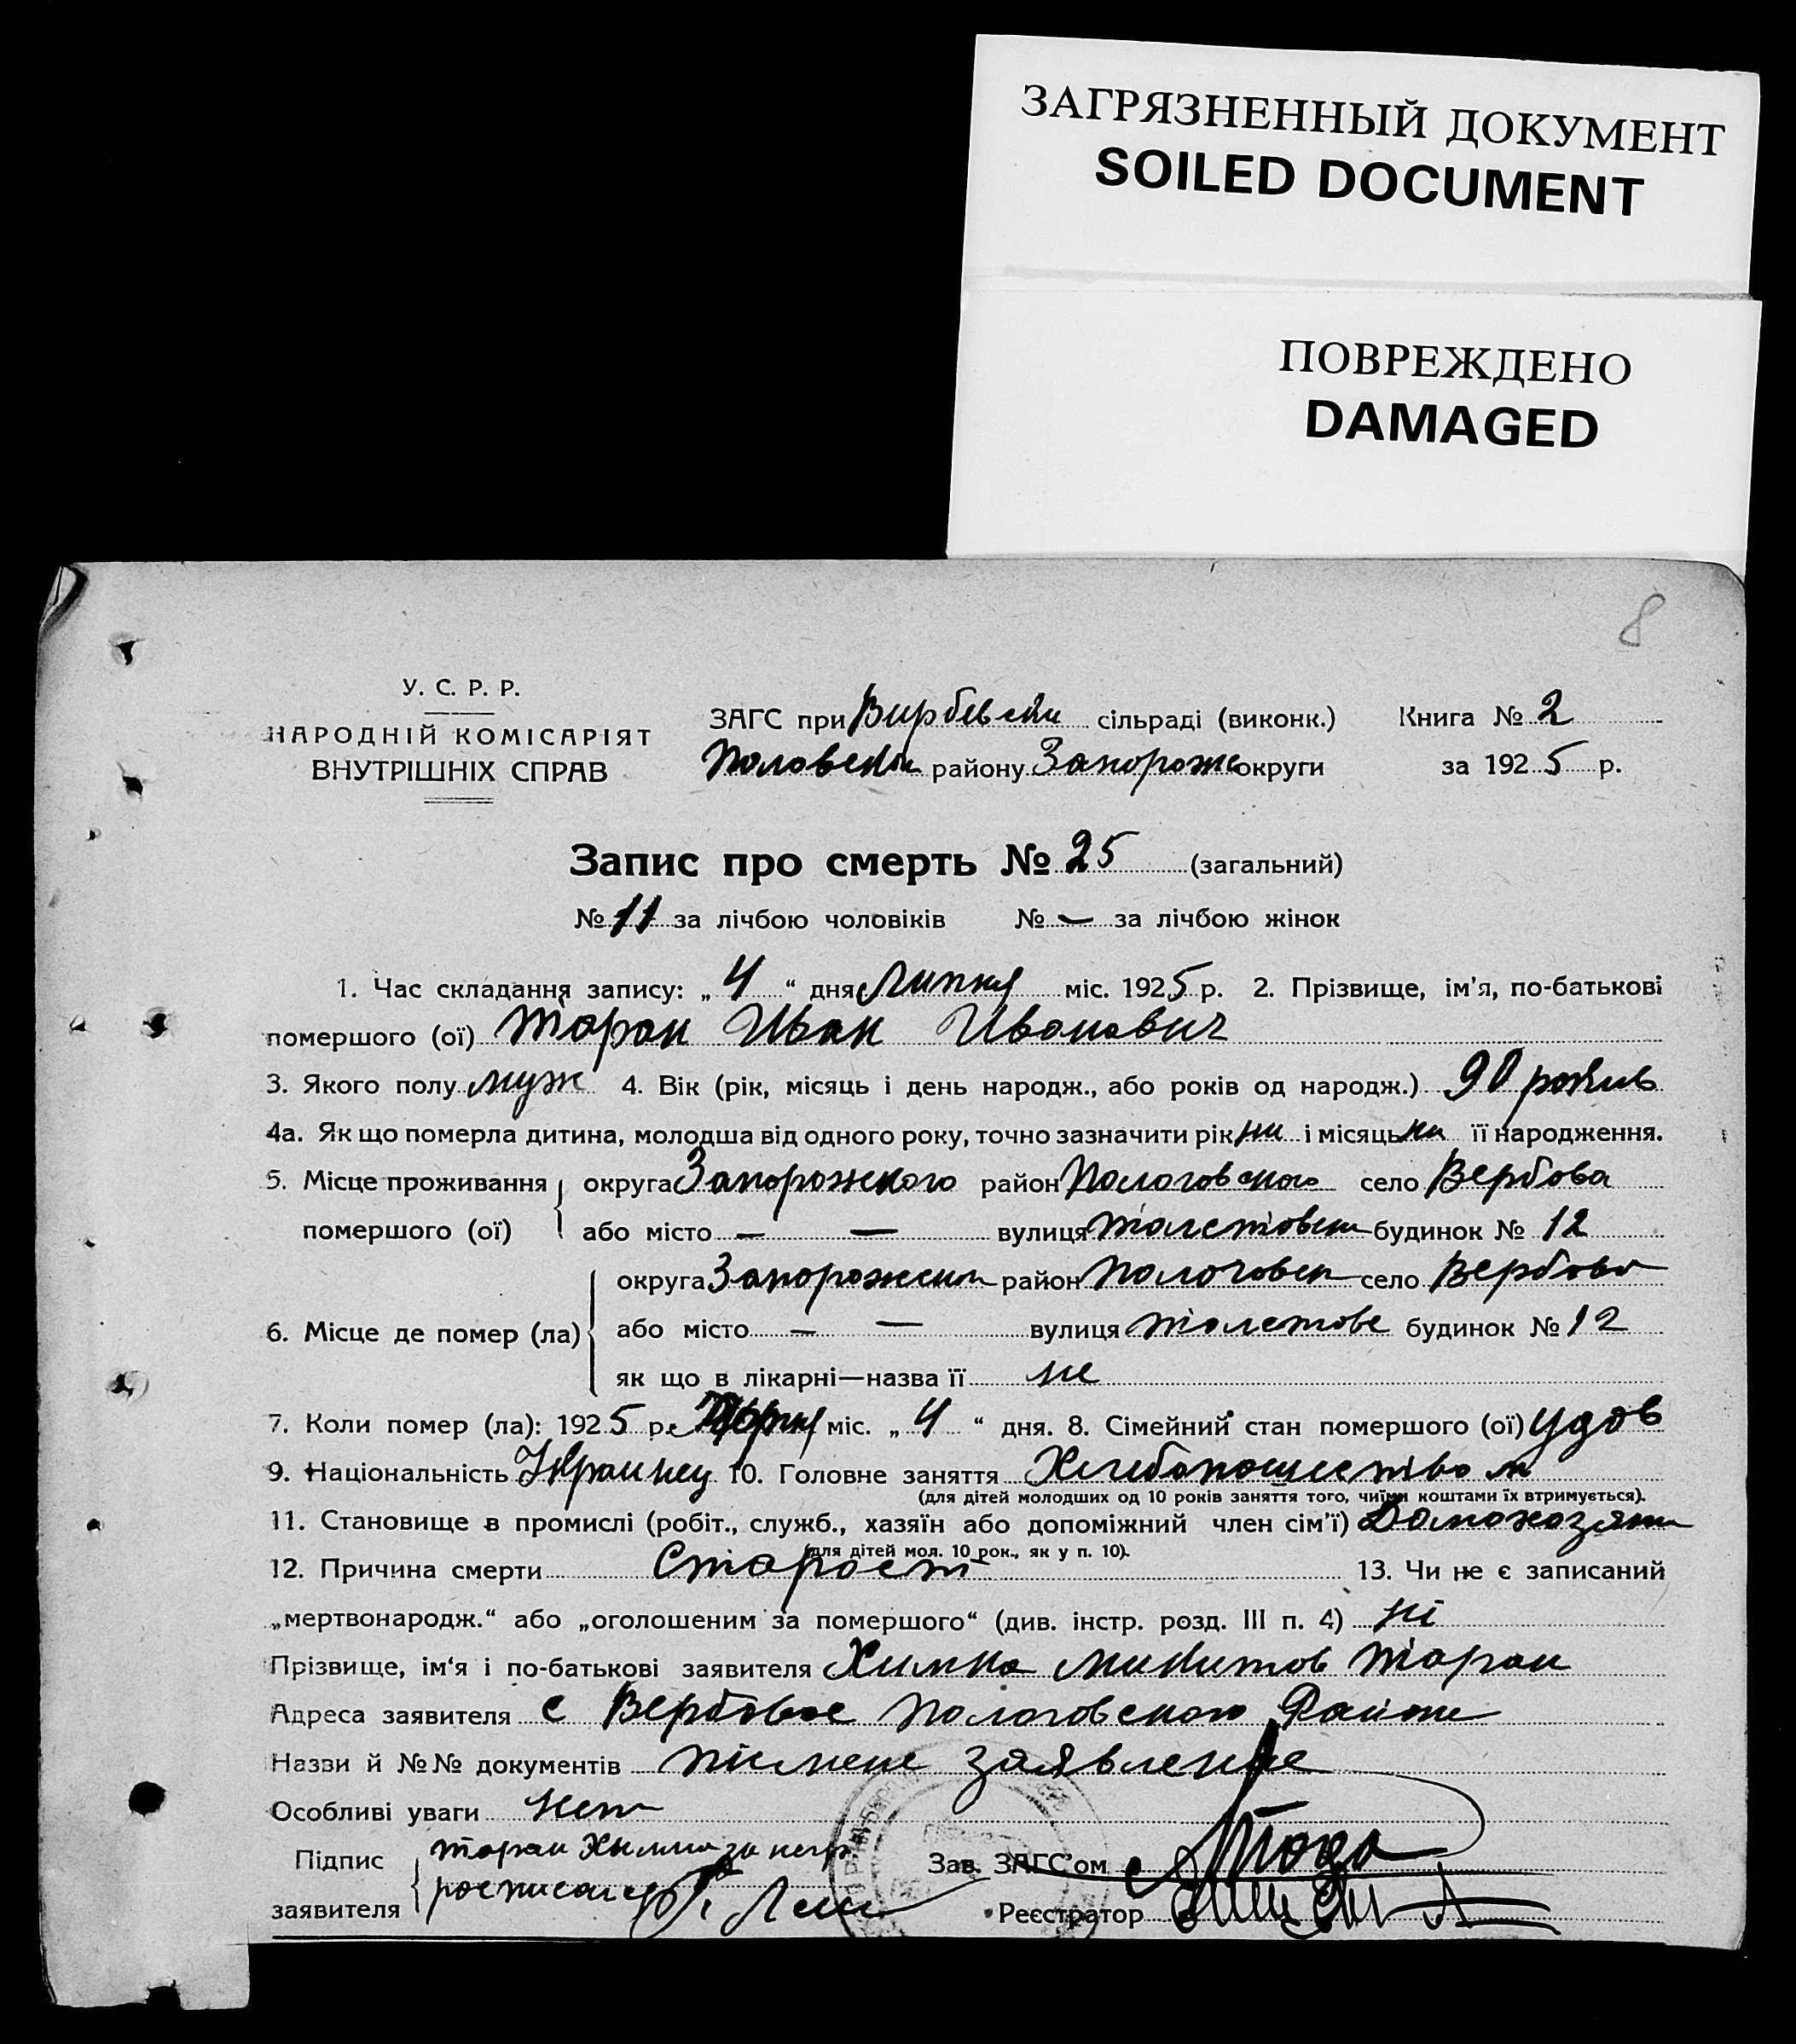 ЗАГРЯЗНЕННЫЙ ДОКУМЕНТ
SOILED DOCUMENT
ПОВРЕЖДЕНО
DAMAGED
8
У. С. Р. Р.
НАРОДНІЙ КОМІСАРІЯТ
ВНУТРІШНІХ СПРАВ
ЗАГС при Вирбевски сільраді (виконк.) Книга № 2
району Запорож округи за 1925 р.
Запис про смерть № 25 (загальний)
№ 11 за лічбою чоловіків № — за лічбою жінок
1. Час складання запису: „ 4 “ дня Липня міс. 1925 р. 2. Прізвище, ім’я, по-батькові
помершого (ої) Таран Иван Иванович
3. Якого полу муж 4. Вік (рік, місяць і день народж., або років од народж.) 90 рокив
4а. Як що померла дитина, молодша від одного року, точно зазначити рік ни і місяць ни її народження.
5. Місце проживання помершого (ої) округа Запорожского район Пологовского село Вербова
або місто — — вулиця Толстовск будинок № 12
6. Місце де помер (ла) округа Запорожск район Пологовск село Вербово
або місто — — вулиця Толстове будинок № 12
як що в лікарні—назва її не
7. Коли помер (ла): 1925 р. міс. „ 4 “ дня. 8. Сімейний стан помершого (ої) удов
9. Національність Украинец 10. Головне заняття
(для дітей молодших од 10 років заняття того, чиїми коштами їх втримується).
11. Становище в промислі (робіт., служб., хазяїн або допоміжний член сім’ї) Домохозяин
(для дітей мол. 10 рок., як у п. 10).
12. Причина смерти Старост 13. Чи не є записаний
„мертвонародж.“ або „оголошеним за помершого“ (див. інстр. розд. III п. 4) ні
Прізвище, ім‘я і по-батькові заявителя Химка Микитов Таран
Адреса заявителя с Вербовое Пологовского Району
Назви й №№ документів пісмене заявление
Особливі уваги нет
Підпис заявителя Таран Хымка за негр
росписался
Зав. ЗАГС’ом
Реєстратор